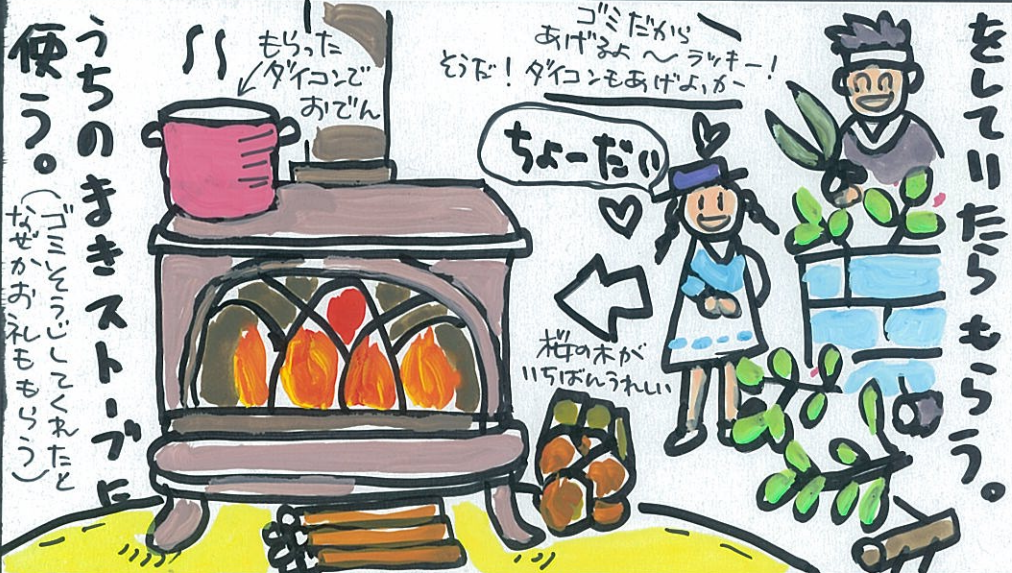 をしていたらもらう。
ゴミだから
あげるよ〜ラッキー!
そうだ!ダイコンもあげよっか
ちょーだい
桜の木が
いちばんうれしい
もらった
ダイコンで
おでん
うちのまきストーブに
便う。
(ゴミそうじしてくれたと
なぜかお礼ももらう)